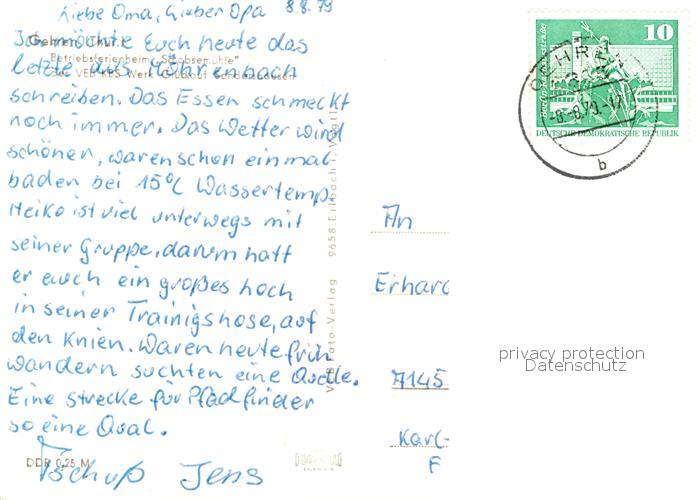 Liebe Oma, Lieber Opa 8.8.79
Ich möchte Euch heute das
letzte aus Möhrenbach
schreiben. Das Essen schmeckt
noch immer. Das Wetter wird
schöner, waren schon einmal
baden bei 15°C Wassertemp.
Heiko ist viel unterwegs mit
seiner Gruppe, darum hatt
er auch ein großes hoch
in seiner Trainigshose, auf
den Knien. Waren heute früh
wandern suchten eine Quelle.
Eine strecke für Pfadfinder
so eine Qual.
Tschuß Jens
Gehren (Thür.)
Betriebsferienheim "Schobsemühle"
des VEB KLS Werk
DDR 0,25 M
VEB Foto-Verlag 9658 Erlbach i. Vogtl.
An
Erhard
7145
Karl-
F
10
DEUTSCHE DEMOKRATISCHE REPUBLIK
GEHREN
-8.-8.79.-17
b
privacy protection
Datenschutz